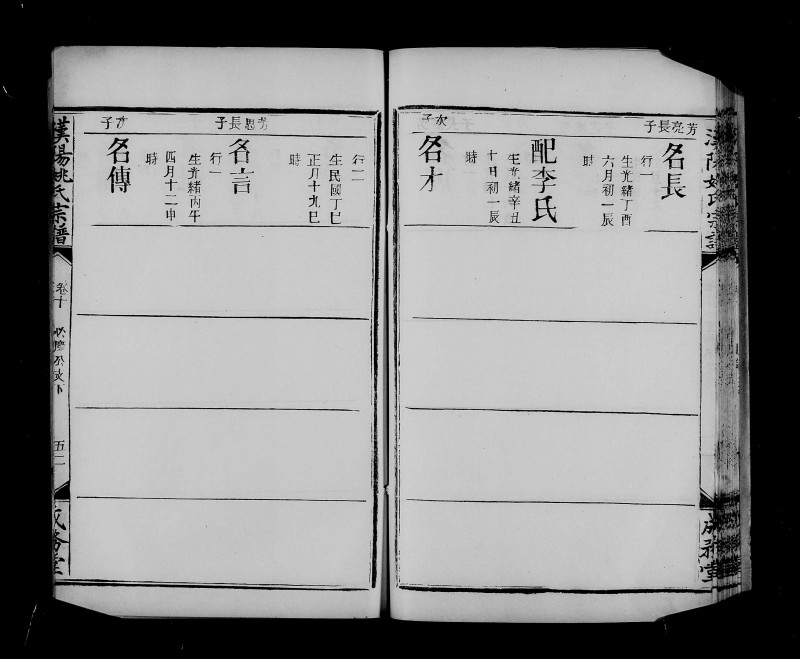 芳亮長子
名長
行一
生光緒丁酉
六月初一辰
時
配李氏
生光緒辛丑
十日初一辰
時
次子
名才
行二
生民國丁巳
正月十九巳
時
芳思長子
名言
行一
生光緒丙午
四月十二申
時
次子
名傳
漢陽姚氏宗譜
卷十
五二